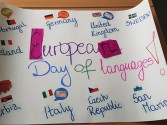 Portugal
Germany
United
Kingdom
SWEDEN
European
Day of languages!
Serbia
Italy
Czech
Republic
San
Marino